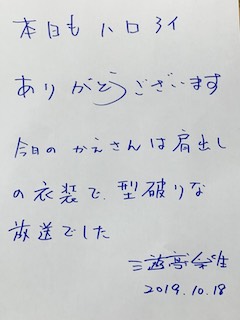 本日も
ありがとうございます
今日の かえさんは肩出し
の衣装で、型破りな
放送でした
2019.10.18